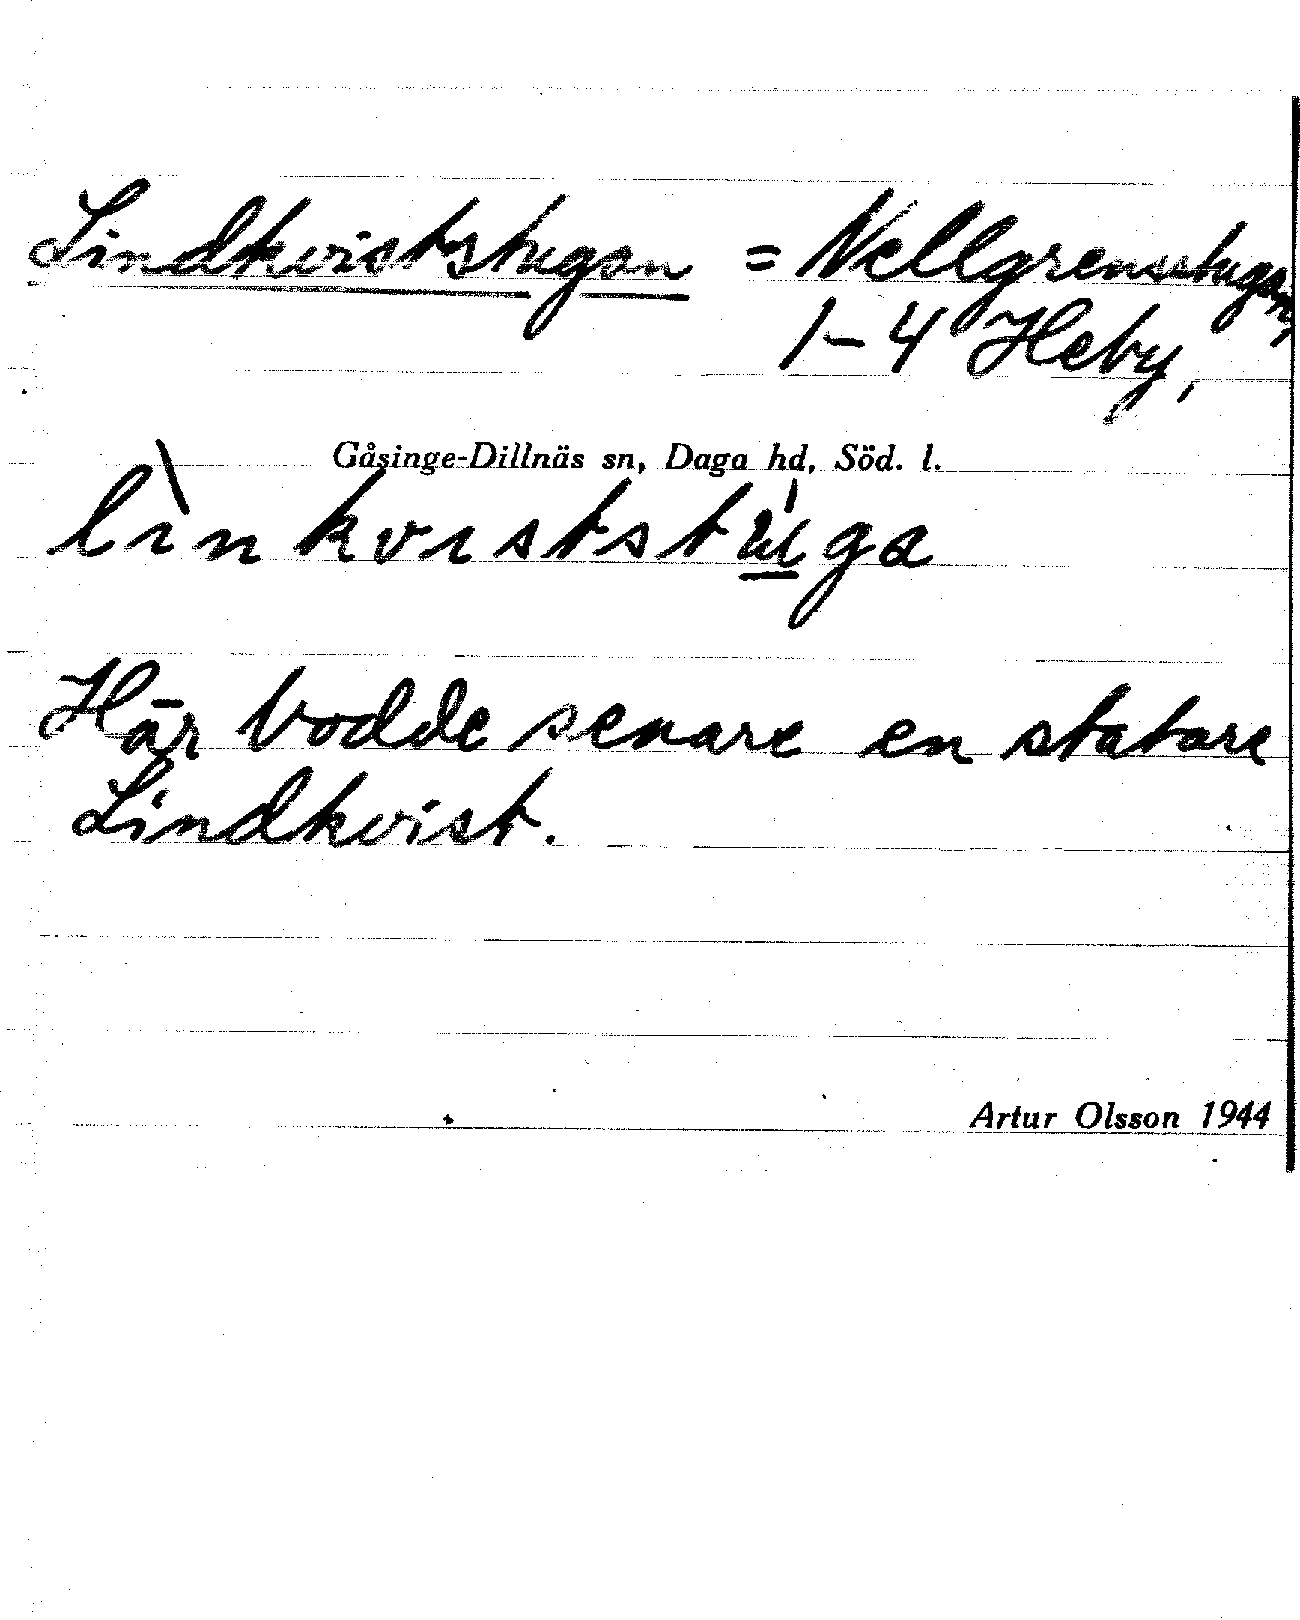 Lindkviststugan = Nellgrensstugan,
1-4 Heby,
Gåsinge-Dillnäs sn, Daga hd, Söd. l.
lìnkvıststú̲ga
Här bodde senare en statare
Lindkvist.
Artur Olsson 1944